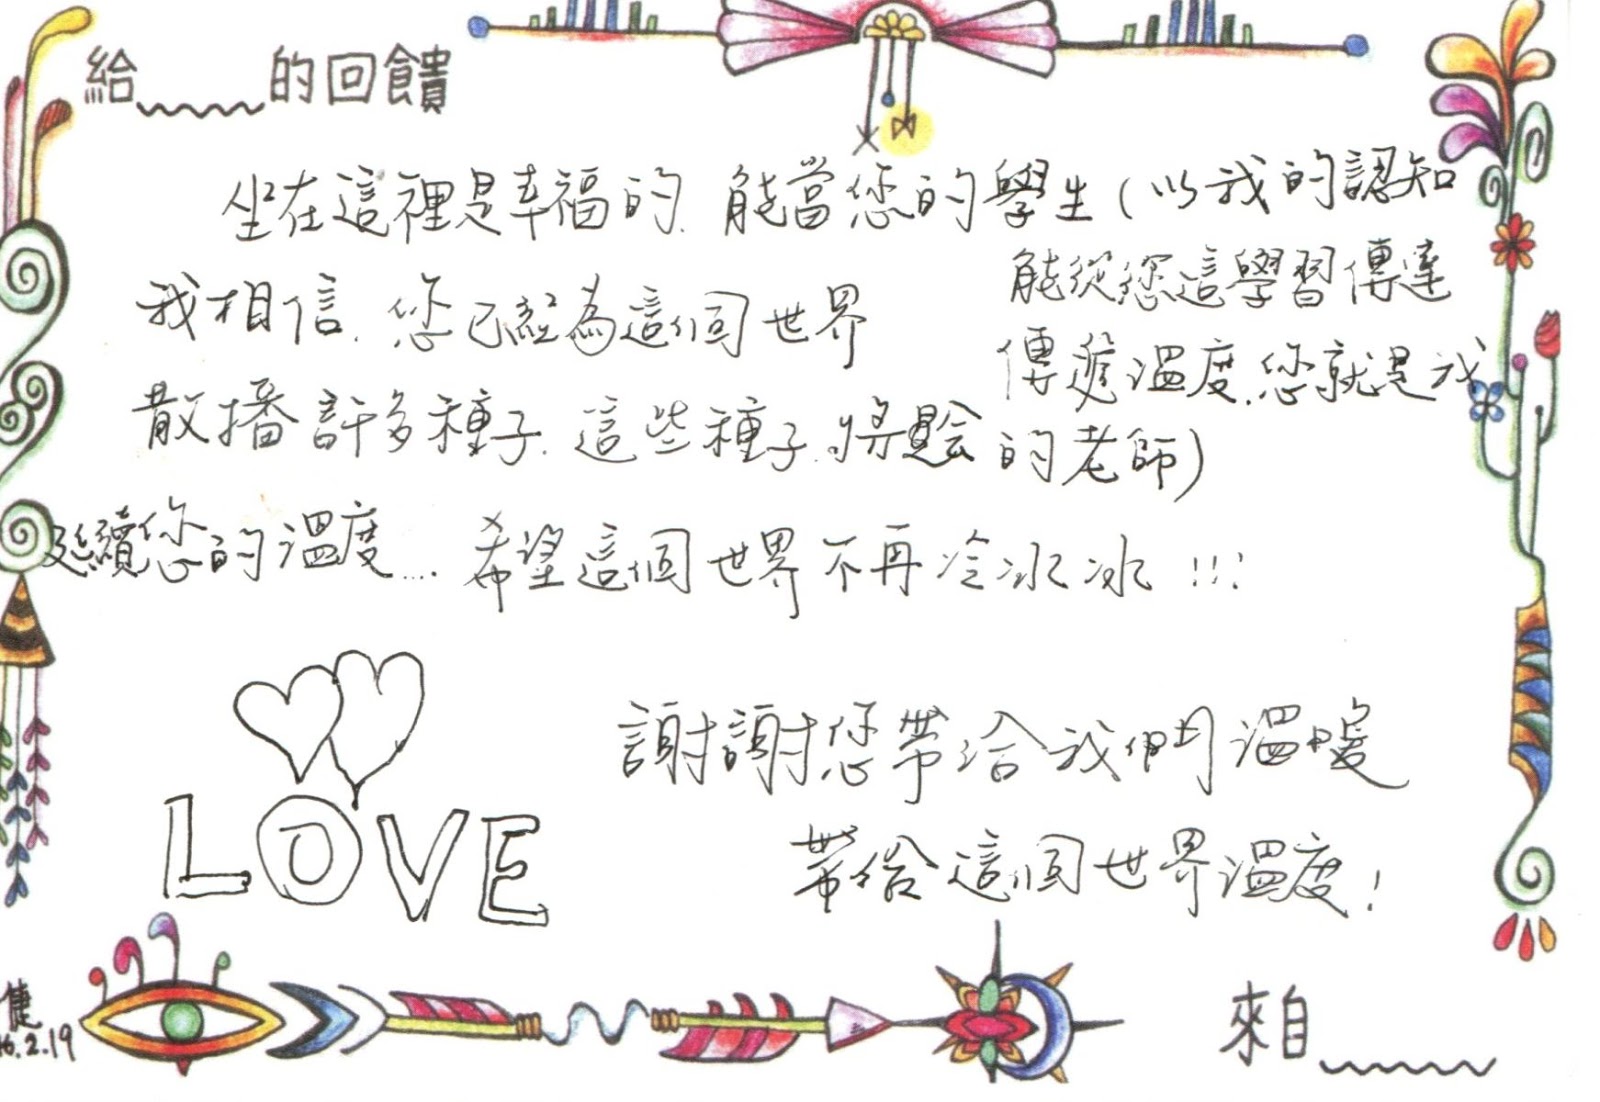 給 的回饋
坐在這裡是幸福的. 能當您的學生(以我的認知
能從您這學習傳達
傳遞溫度.您就是我
的老師)
我相信. 您已經為這個世界
散播許多種子. 這些種子.將會
延續您的溫度... 希望這個世界不再冷冰冰!!!
LOVE
謝謝您帶給我們溫暖
帶給這個世界溫度!
健
16.2.19
來自